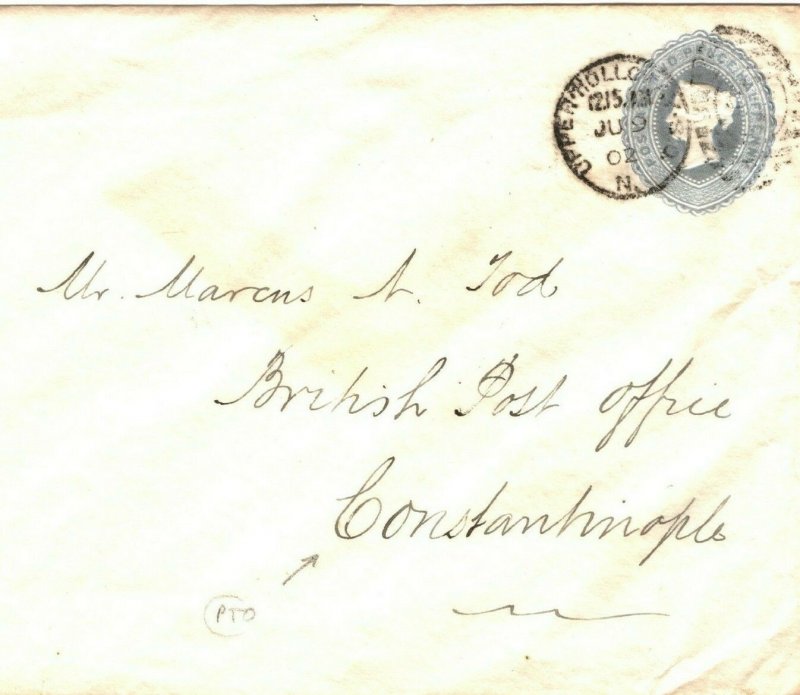 UPPER HOLLO
12.15 AM
JU 9
02
N.
Mr. Marcus N. Tod
British Post Office
Constantinople
PTO